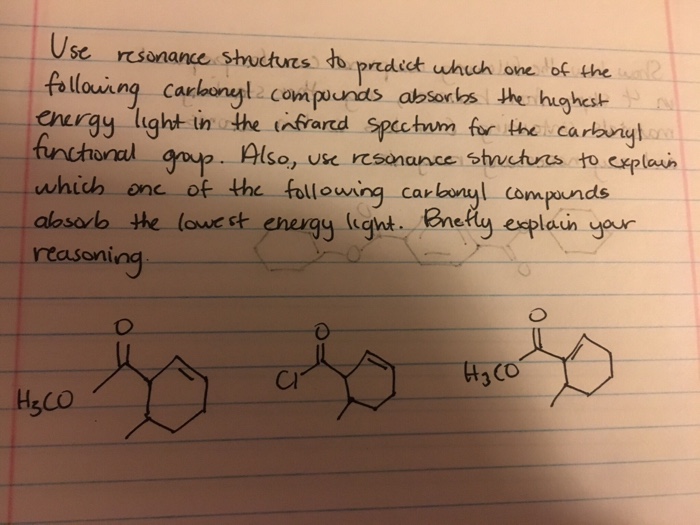 Use resonance structures to predict which one of the
following carbonyl compounds absorbs the highest
energy light in the infrared spectrum for the carbonyl
functional group. Also, use resonance structures to explain
which one of the following carbonyl compounds
absorb the lowest energy light. Briefly explain your
reasoning.
O O O
H3CO Cl H3CO